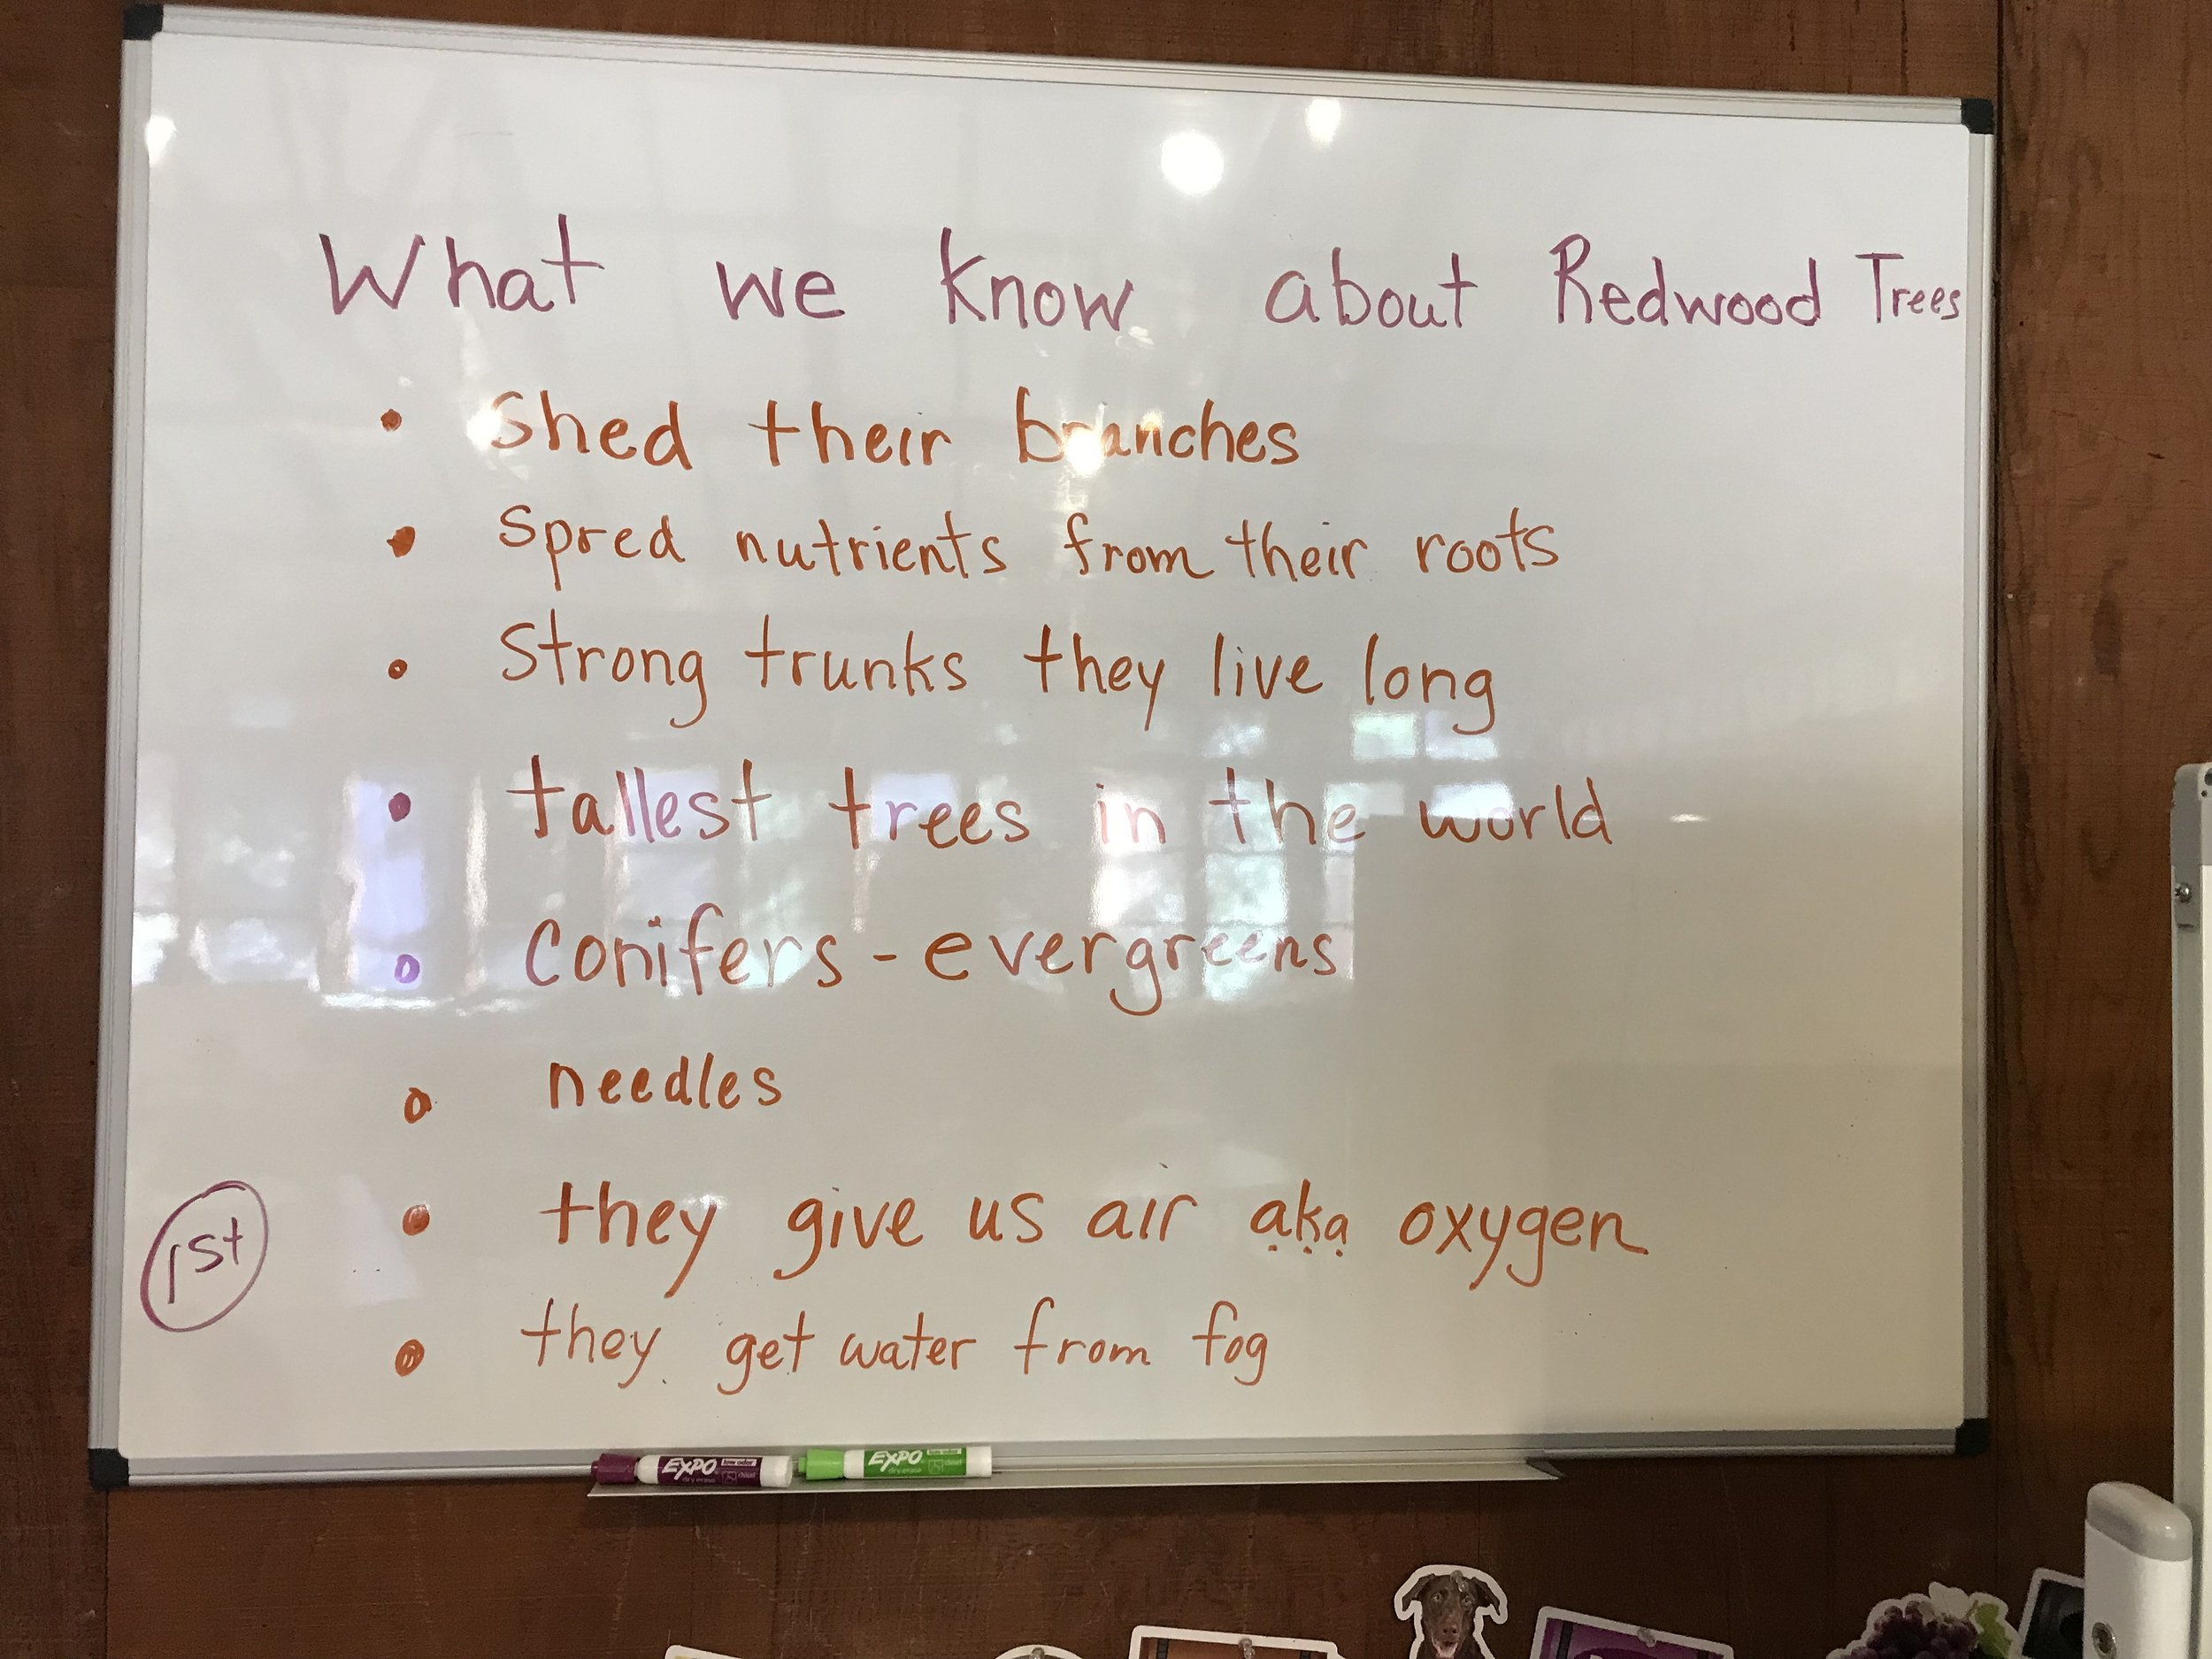 What we know about Redwood Trees
• Shed their branches
• Spred nutrients from their roots
• Strong trunks they live long
• tallest trees in the world
• Conifers - evergreens
• needles
• they give us air aka oxygen
1st
• they get water from fog
EXPO low odor dry erase chisel
EXPO low odor dry erase chisel